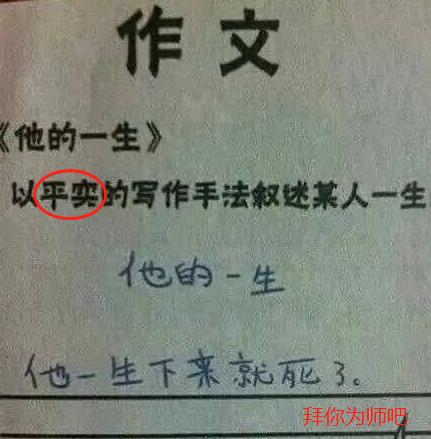 作文
《他的一生》
以平实的写作手法叙述某人一生
他的一生
他一生下来就死了。
拜你为师吧